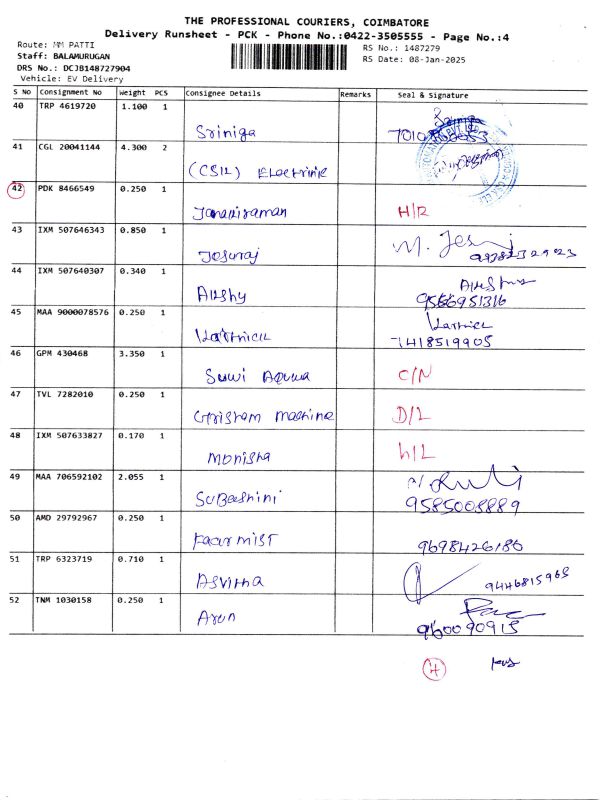 THE PROFESSIONAL COURIERS, COIMBATORE
Delivery Runsheet - PCK - Phone No.:0422-3505555 - Page No.:4
Route: MM PATTI
RS No.: 1487279
Staff: BALAMURUGAN
RS Date: 08-Jan-2025
DRS No.: DCJB148727904
Vehicle: EV Delivery
S No Consignment No Weight PCS Consignee Details Remarks Seal & Signature
40 TRP 4619720 1.100 1
Sriniga
41 CGL 20041144 4.300 2
(CSIL) Electrinic
42 PDK 8466549 0.250 1
Janakiraman H/R
43 IXM 507646343 0.850 1
Josuraj
44 IXM 507640307 0.340 1
Akshy 9566951316
45 MAA 9000078576 0.250 1
Karthick 7418519905
46 GPM 430468 3.350 1
Suwi Aquwa C/N
47 TVL 7282010 0.250 1
Grisham Machine D/L
48 IXM 507633827 0.170 1
Monisha h/L
49 MAA 706592102 2.055 1
Subashini 9585008889
50 AMD 29792967 0.250 1
9698426186
51 TRP 6323719 0.710 1
Asvitha 9446815965
52 TNM 1030158 0.250 1
Arun 960090915
4